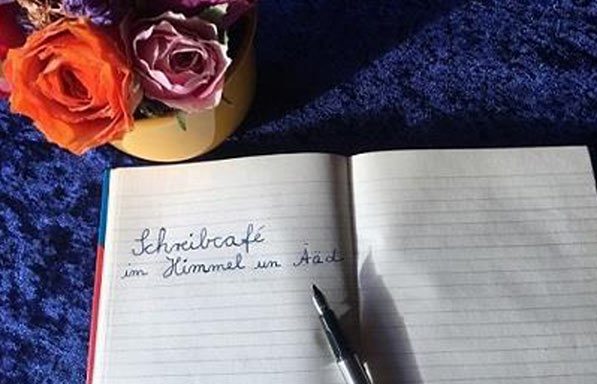 Schreibcafé
im Himmel un Ääd